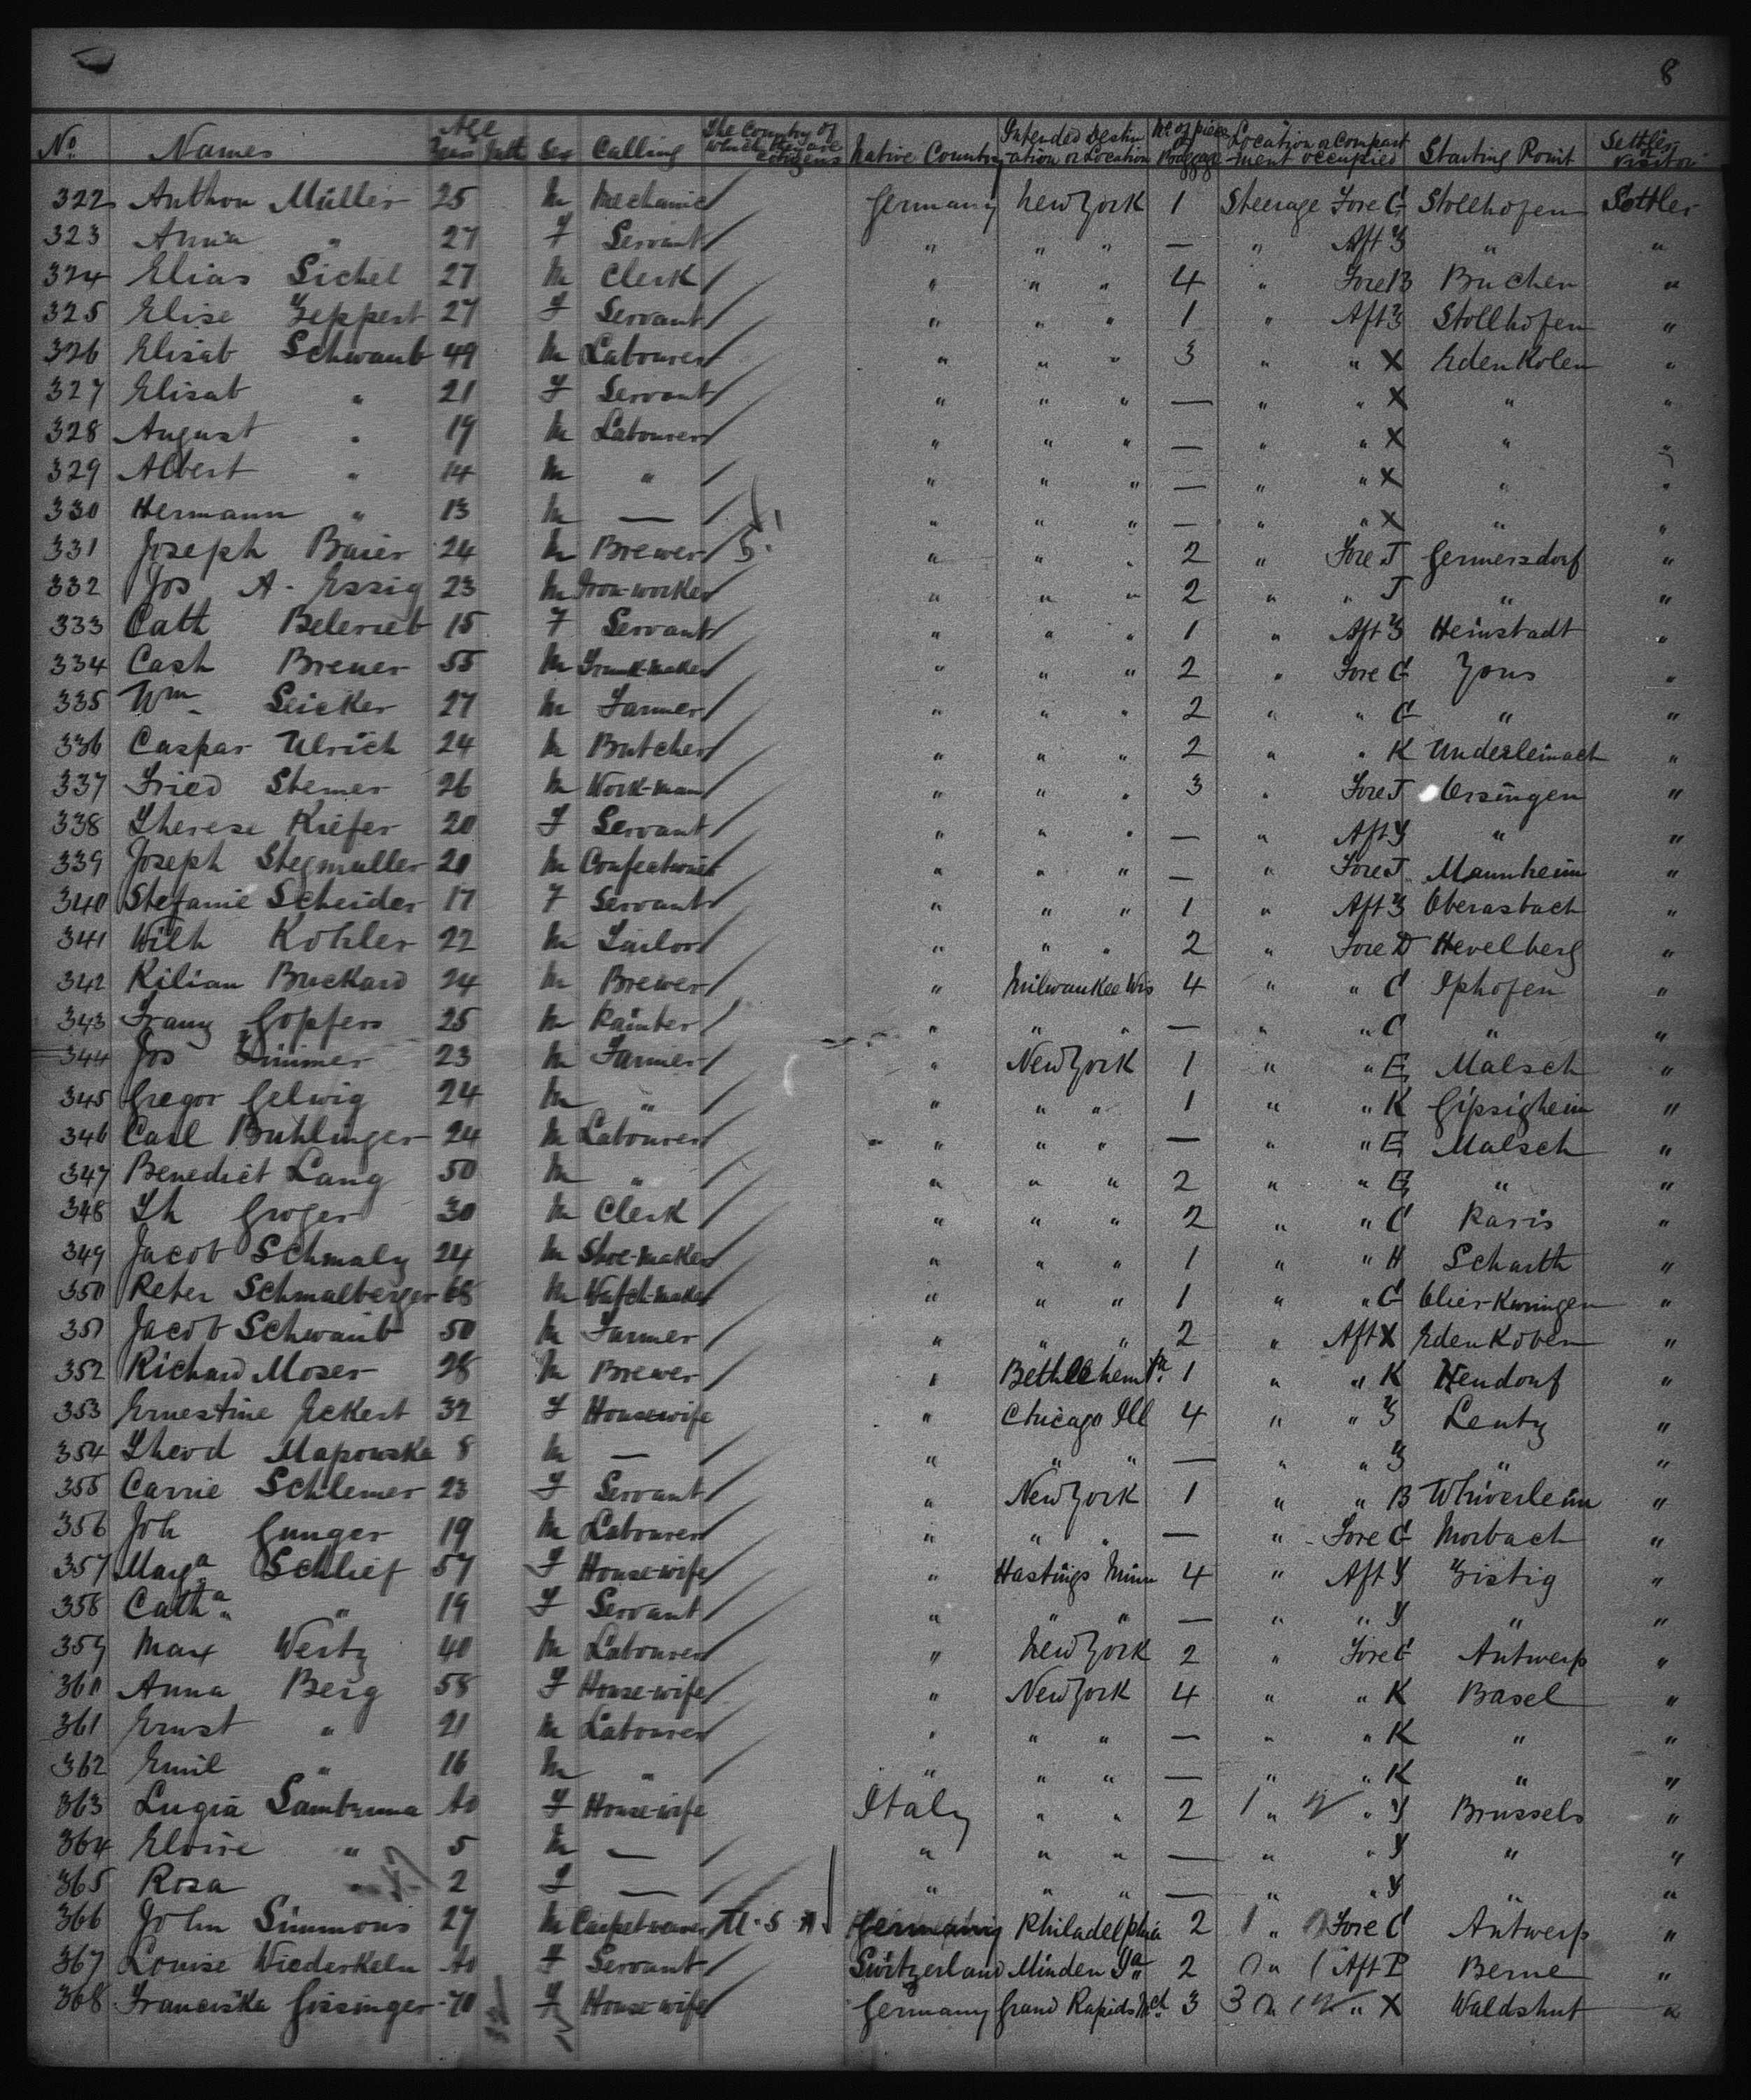 8
No. Names Age Years Mth Sex Calling The Country of which they are citizens Native Country Intended Destination or Location No of pieces Baggage Location or Compartment occupied Starting Point Settler or visitor
322 Anthon Müller 25 M Mechanic Germany New York 1 Steerage Fore G Stollhofen Settler
323 Anna " 27 F Servant " " " — " Aft Z " "
324 Elias Sichel 27 M Clerk " " " 4 " Fore B Buchen "
325 Elise Zeppert 27 F Servant " " " 1 " Aft Z Stollhofen "
326 Elisab Schwaub 49 M Labourer " " " 3 " " X EdenKolen "
327 Elisab " 21 F Servant " " " — " " X " "
328 August " 19 M Labourer " " " — " " X " "
329 Albert " 14 M " " " " — " " X " "
330 Hermann " 13 M — " " " — " " X " "
331 Joseph Baier 24 M Brewer " " " 2 " Fore J Germersdorf "
332 Jos A. Essig 23 M Iron-worker " " " 2 " " J " "
333 Cath Belerieb 15 F Servant " " " 1 " Aft Z Heinstadt "
334 Cash Brener 55 M Trunk-maker " " " 2 " Fore G Zons "
335 Wm Seicker 27 M Farmer " " " 2 " " G " "
336 Caspar Ulrich 24 M Butcher " " " 2 " " K Underleinach "
337 Fried Stemer 26 M Work-man " " " 3 " Fore J Orsingen "
338 Therese Kiefer 20 F Servant " " " — " Aft Y " "
339 Joseph Stegmuller 20 M Confectioner " " " — " Fore J Mannheim "
340 Stefanie Scheider 17 F Servant " " " 1 " Aft Z Oberasbach "
341 Wilh Kohler 22 M Tailor " " " 2 " Fore D Hevelberg "
342 Kilian Buckard 24 M Brewer " Milwaukee Wis 4 " " C Iphofen "
343 Franz Gopfers 25 M Painter " " " — " " C " "
344 Jos Zimmer 23 M Farmer " New York 1 " " E Malsch "
345 Gregor Gelwig 24 M " " " " 1 " " K Gipsigheim "
346 Carl Buhlinger 24 M Labourer " " " — " " E Malsch "
347 Benedict Lang 50 M " " " " 2 " " E " "
348 Th Groger 30 M Clerk " " " 2 " " C Paris "
349 Jacob Schmalz 24 M Shoe-maker " " " 1 " " H Scharth "
350 Peter Schmalberger 68 M Watch-maker " " " 1 " " G "
351 Jacob Schwaub 50 M Farmer " " " 2 " Aft X EdenKoben "
352 Richard Moser 28 M Brewer " Bethlehem Pa. 1 " " K Hendorf "
353 Ernestine Eckert 32 F Housewife " Chicago Ill 4 " " Z Lentz "
354 Theod Mapowska 8 M — " " " — " " Z " "
355 Carrie Schlemer 23 F Servant " New York 1 " " B "
356 Joh Gunger 19 M Labourer " " " — " Fore G Morbach "
357 Marga Schlief 57 F House-wife " Hastings Minn 4 " Aft Y Zistig "
358 Catha " 19 F Servant " " " — " " Y " "
359 Max Wertz 40 M Labourer " New York 2 " Fore G Antwerp "
360 Anna Berg 58 F House-wife " New York 4 " " K Basel "
361 Ernst " 21 M Labourer " " " — " " K " "
362 Emil " 16 M " " " " — " " K " "
363 Lugia Sambruna 40 F House-wife Italy " " 2 " " Y Brussels "
364 Eloire " 5 M — " " " — " " Y " "
365 Rosa " 2 F — " " " — " " Y " "
366 John Simmons 27 M Carpet-weaver U.S.A. Germany Philadelphia 2 " Fore C Antwerp "
367 Louise Wiederkeln 40 F Servant Switzerland Minden 2 " Aft P Berne "
368 Franciska Gissinger 70 F House-wife Germany Grand Rapids Mch 3 " " X Waldshut "